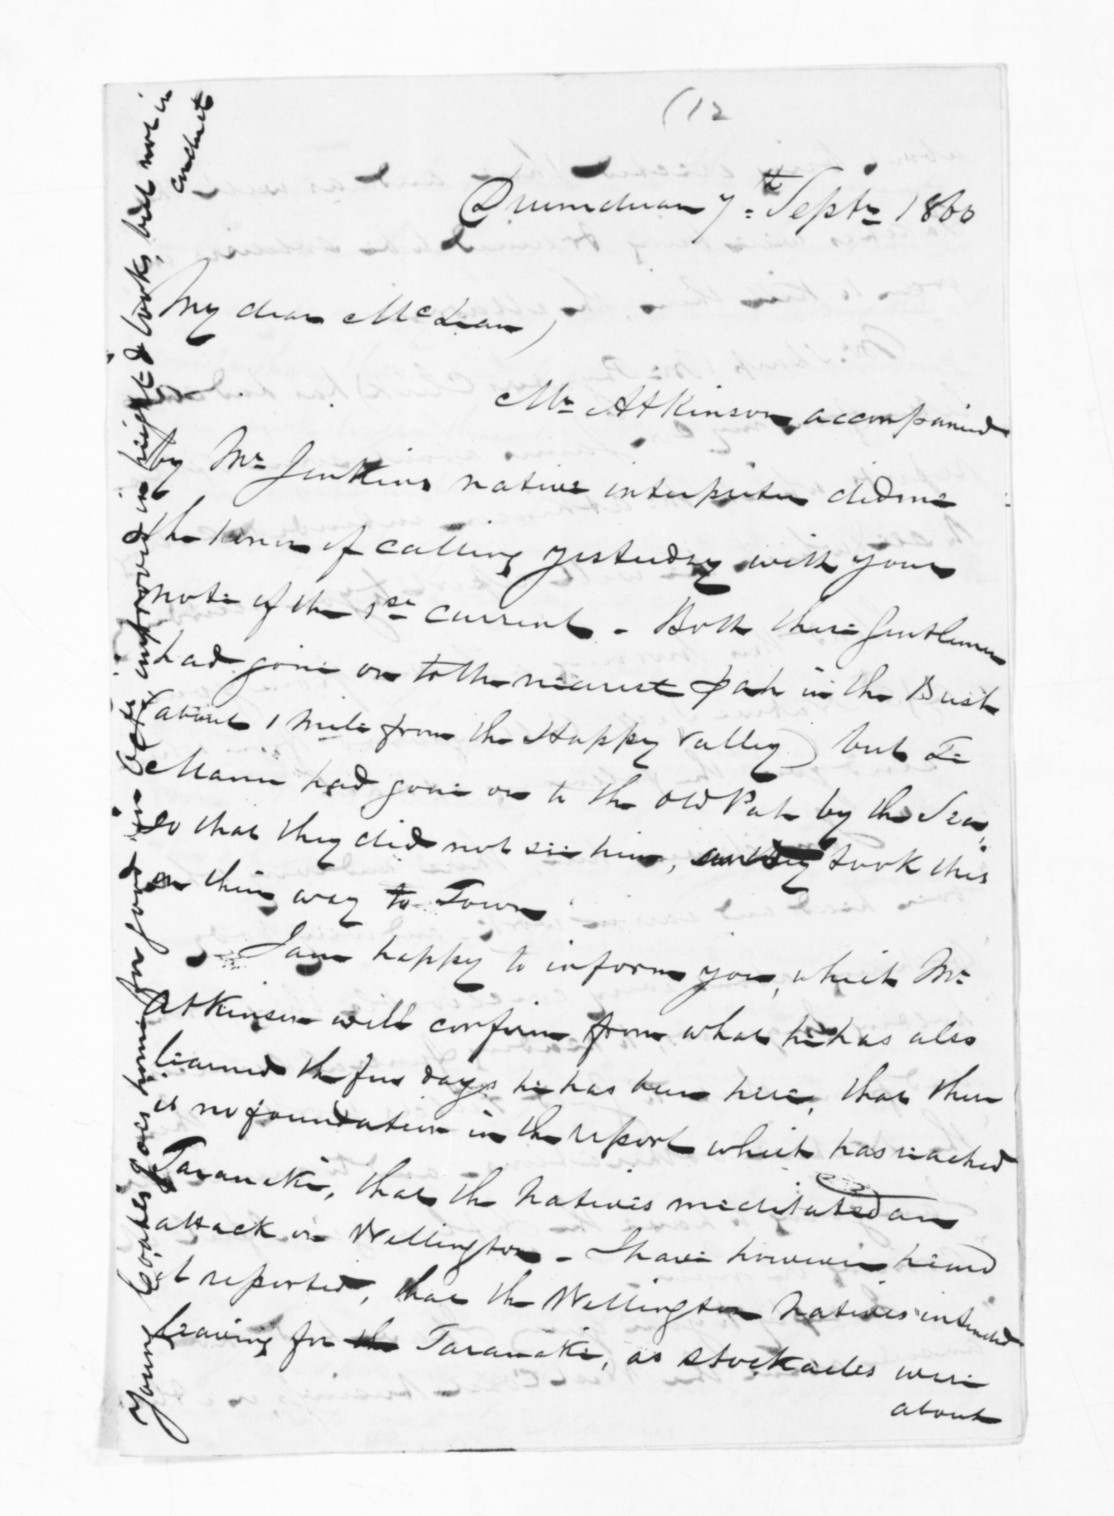 (12
Drumduan 7th Septr 1860
My dear McLean,
Mr Atkinson accompanied
by Mr Jenkins native interpreter did me
the honor of calling yesterday with your
note of the 1st current - Both these Gentlemen
had gone on to the nearest pah in the Bush
(about 1 mile from the Happy Valley) but
had gone on to the Old Pah by the Sea,
so that they did not see him, took this
on their way to Town
I am happy to inform you, which Mr
Atkinson will confirm from what he has also
learned the few days he has been here, that there
is no foundation in the report which has reached
Taranaki, that the natives meditated an
attack on Wellington - I have however heard
it reported, that the Wellington natives intended
leaving for the Taranaki, as stockades were
about
Young Coates goes home for good improved in height & looks, but not in
conduct